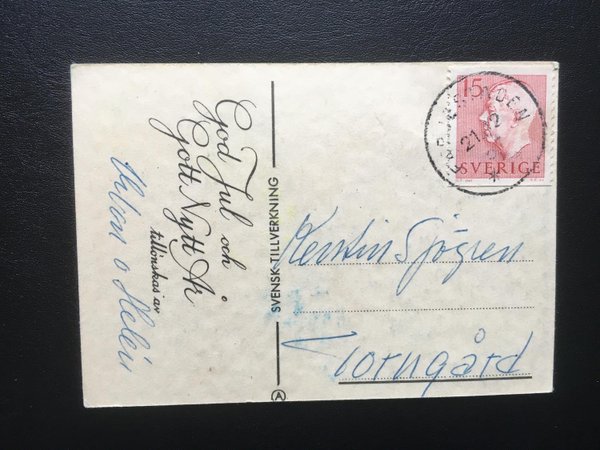 God Jul och
Gott Nytt År
tillönskas av
SVENSK TILLVERKNING
15
SVERIGE
21 12
Kerstin Sjögren
Torngård